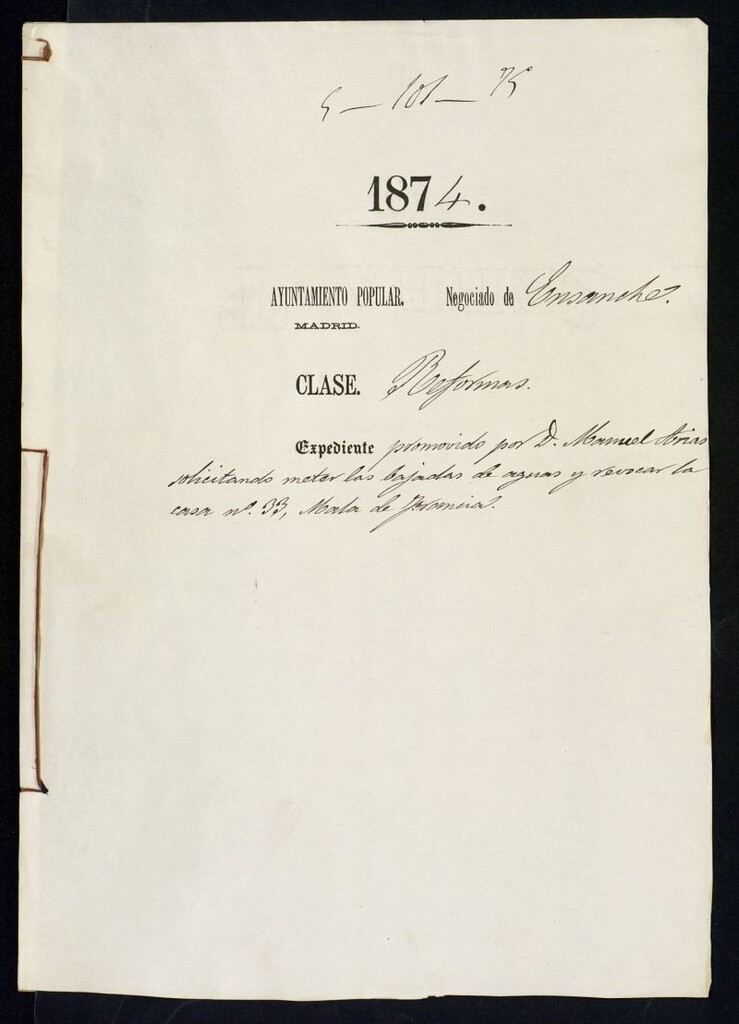 5 — 101 — 75
1874.
AYUNTAMIENTO POPULAR. Negociado de Ensanche.
MADRID.
CLASE. Reformas.
Expediente promovido por D. Manuel Arias
solicitando meter las bajadas de aguas y revocar la
casa nº. 33, Mala de Francia.